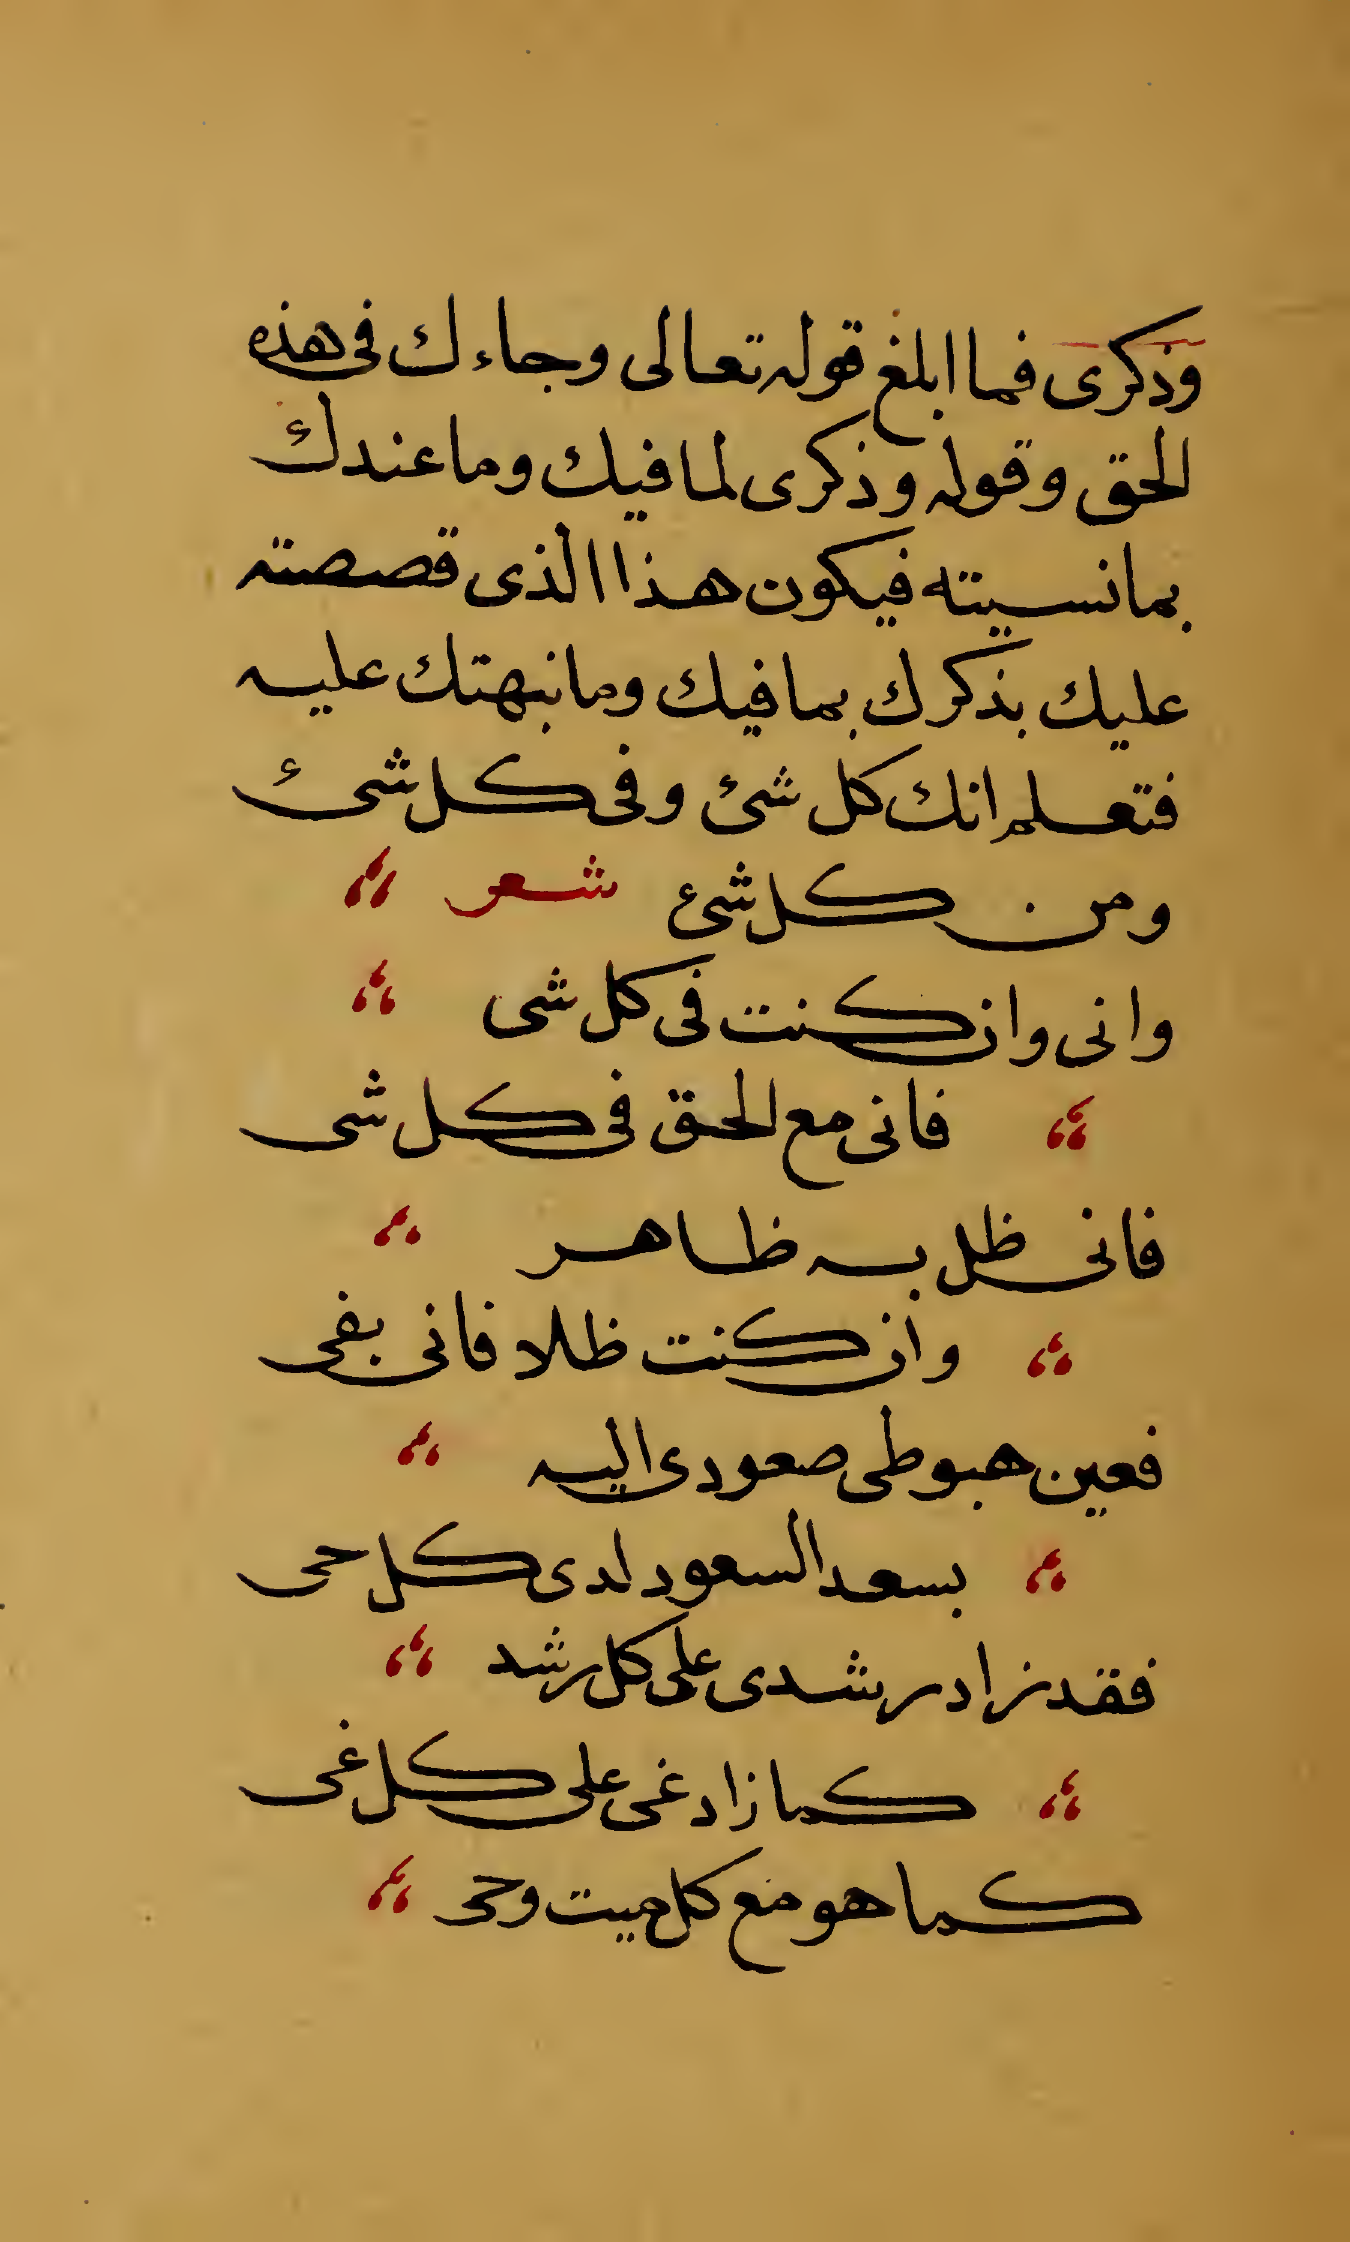 وذكرى فما ابلغ قوله تعالى وجاءك فى هذه
الحق وقوله وذكرى لما فيك وما عندك
بما نسيته فيكون هذا الذى قصصته
عليك بذكرك بما فيك وما نبهتك عليه
فتعلم انك كل شئ وفى كل شئ
ومن كل شئ شعر
وانى وان كنت فى كل شى
فانى مع الحق فى كل شى
فانى ظل به ظاهر
وان كنت ظلا فانى بفى
فعين هبوطى صعودى اليه
بسعد السعود لدى كل حى
فقد زاد رشدى على كل رشد
كما زاد غى على كل غى
كما هو مع كل ميت وحى